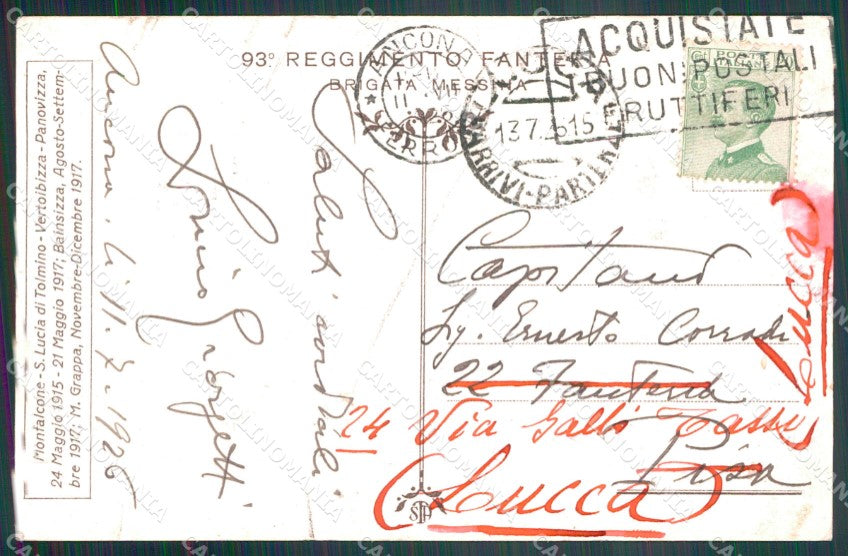 93º REGGIMENTO FANTERIA
BRIGATA MESSINA
Montalcone - S. Lucia di Tolmino - Vertoibizza - Panovizza,
24 Maggio 1915 - 21 Maggio 1917; Bainsizza, Agosto-Settem-
bre 1917; M. Grappa, Novembre-Dicembre 1917.
Ancona, li 11. 7. 1926
Saluti cordiali
Giorgetti
ANCONA
FERROVIA
13.7.26 15
ARRIVI-PARTENZE
ACQUISTATE
BUONI POSTALI
FRUTTIFERI
POSTE
ITALIANE
Capitano
Sig. Ernesto Corradi
22 Fanteria
24 Via Galli Tassi
Pisa
(Lucca)
Lucca
CARTOLINOMANIA